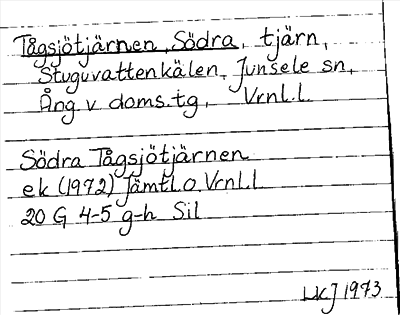 Tågsjötjärnen, Södra, tjärn,
Stuguvattenkälen, Junsele sn,
Ång v doms.tg, Vrnl.l.
Södra Tågsjötjärnen
ek (1972) Jämtl.o.Vrnl.l
20 G 4-5 g-h Sil
LKJ 1973